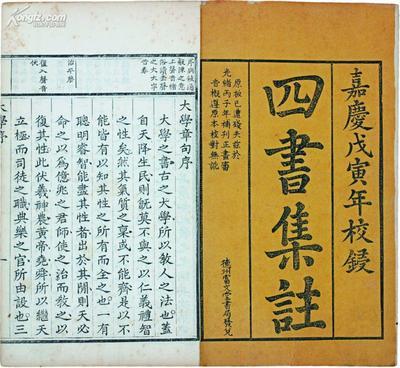 嘉慶戊寅年校鋟
四書集註
原板已遭殘失茲於
光緒丙子年補刊正畫審
音概遵原本校對無訛
德州富文堂書局發兌
序與敘通
上聲音緒
俗讀去聲
之大大字
音泰
治平聲
伏
大學章句序
大學之書古之大學所以教人之法也蓋
自天降生民則既莫不與之以仁義禮智
之性矣然其氣質之稟或不能齊是以不
能皆有以知其性之所有而全之也一有
聰明睿智能盡其性者出於其閒則天必
命之以為億兆之君師使之治而教之以
復其性此伏羲神農黃帝堯舜所以繼天
立極而司徒之職典樂之官所由設也三
大學序
Kongfz.com